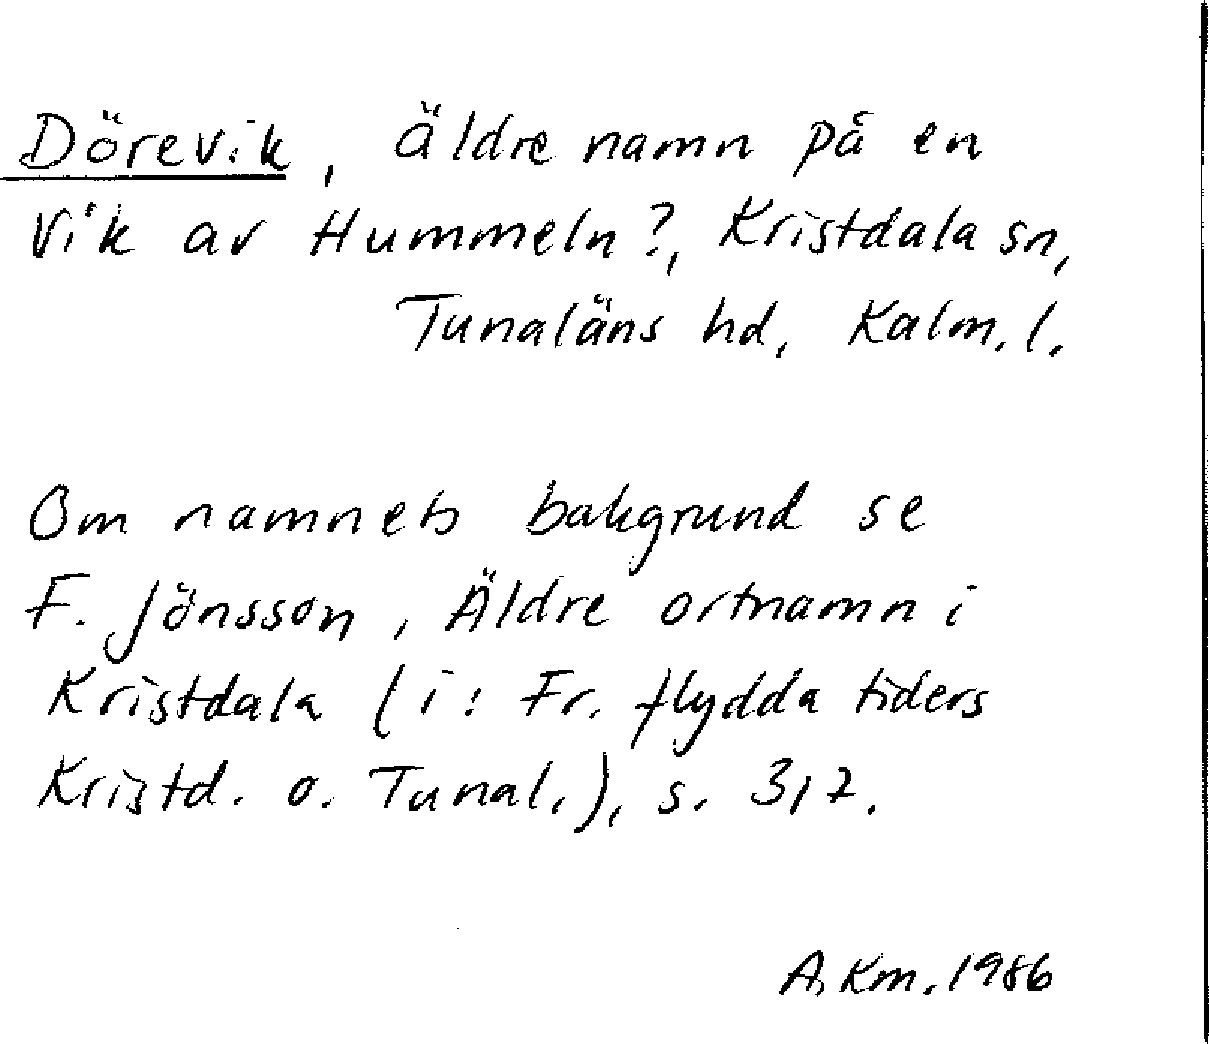 Dörevik, äldre namn på en
vik av Hummeln?, Kristdala sn,
Tunaläns hd, Kalm. l.
Om namnets bakgrund se
F. Jönsson, Äldre ortnamn i
Kristdala (i: Fr. flydda tiders
Kristd. o. Tunal.), s. 317.
A. Km. 1986